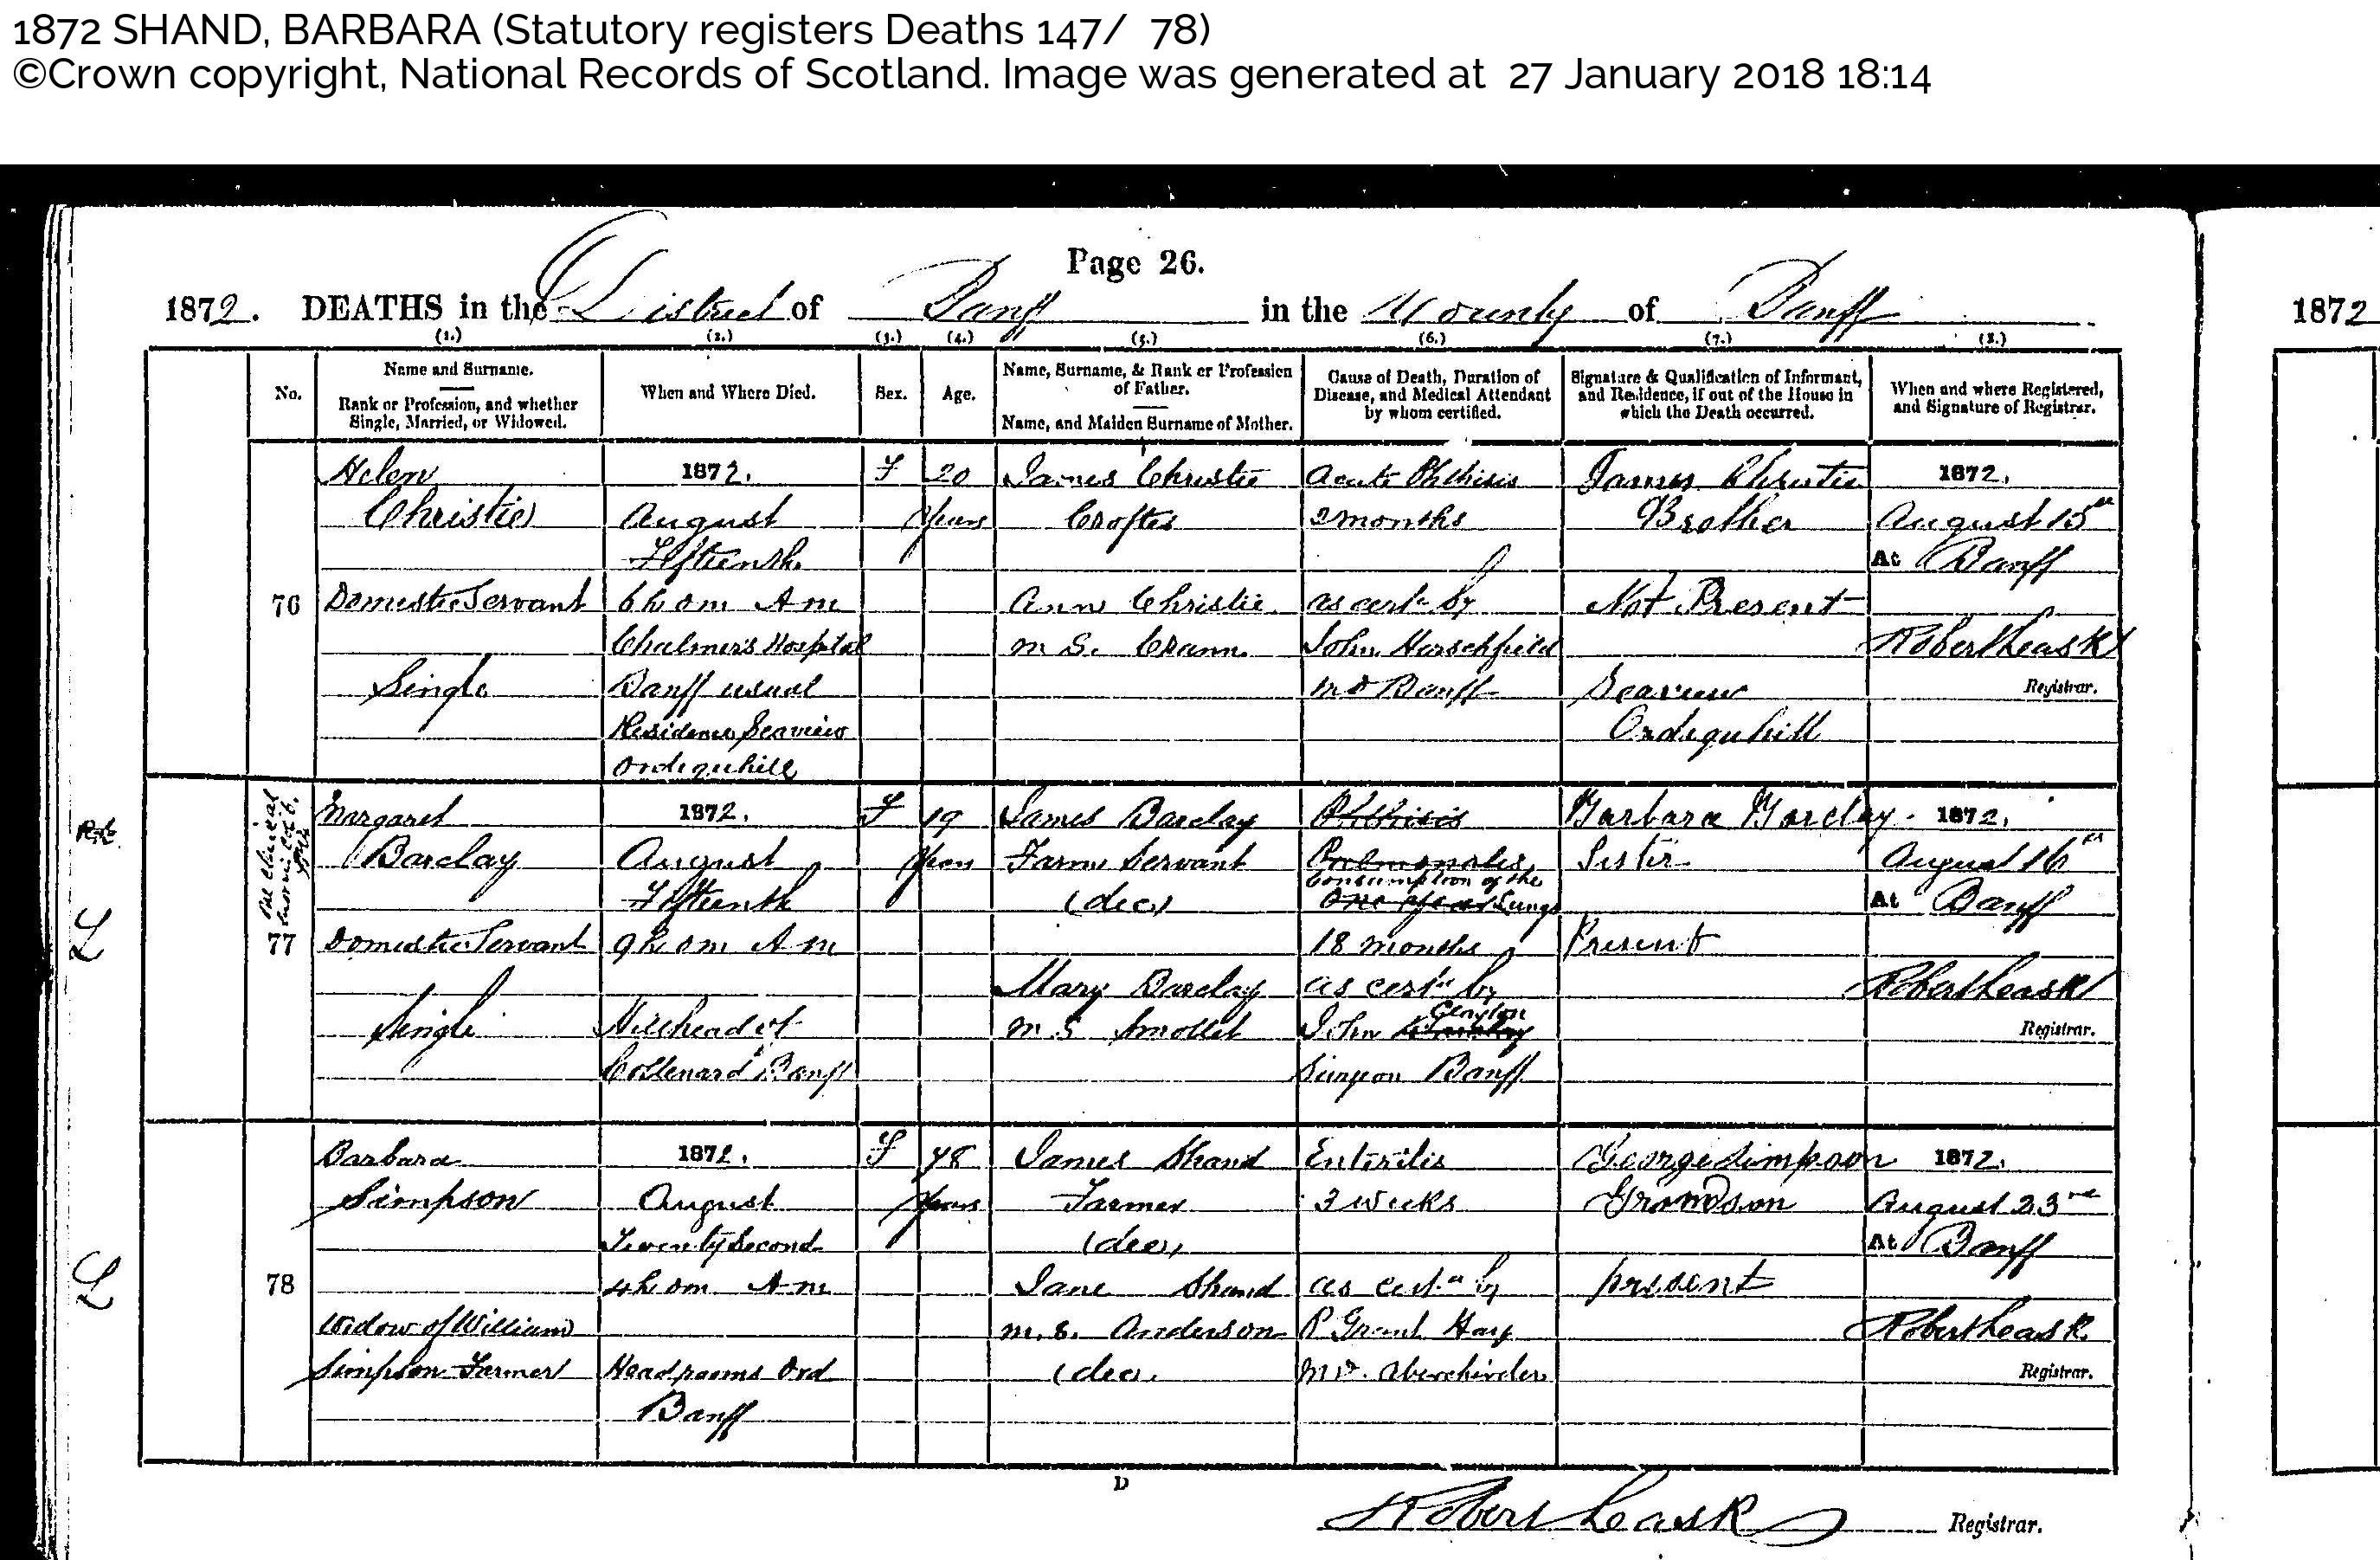 1872 SHAND, BARBARA (Statutory registers Deaths 147/ 78)
©Crown copyright, National Records of Scotland. Image was generated at 27 January 2018 18:14
Page 26.
1872. DEATHS in the District of Banff in the County of Banff
1872
(1.) (2.) (3.) (4.) (5.) (6.) (7.) (8.)
No.
Name and Surname.
Rank or Profession, and whether
Single, Married, or Widowed.
When and Where Died.
Sex.
Age.
Name, Surname, & Rank or Profession
of Father.
Name, and Maiden Surname of Mother.
Cause of Death, Duration of
Disease, and Medical Attendant
by whom certified.
Signature & Qualification of Informant,
and Residence, if out of the House in
which the Death occurred.
When and where Registered,
and Signature of Registrar.
76
Helen
Christie
Domestic Servant
Single
1872.
August
Fifteenth
6h 0m A m
Chalmer's Hospital
Banff usual
Residence Seaview
Ordiquhill
F
20
Years
James Christie
Crofter
Ann Christie
m S. Crann
Acute Phthisis
2 months
as certd by
John Hirschfield
MD Banff
James Christie
Brother
Not Present
Seaview
Ordiquhill
1872.
August 15th
At Banff
Robert Leask
Registrar.
77
Margaret
Barclay
Domestic Servant
Single
1872.
August
Fifteenth
9h 0m A m
Banff
F
19
Years
James Barclay
Farm Servant
(dec)
Mary Barclay
m.S
Phthisis
Pulmonalis
Consumption of the
One year Lungs
18 months
as certd by
Clayton
John
Surgeon Banff
Barbara Barclay
Sister
Present
1872.
August 16th
At Banff
Robert Leask
Registrar.
78
Barbara
Simpson
Widow of William
Simpson Farmer
1872.
August
Twenty Second
4h 0m A m
Headrooms Ord
Banff
F
78
Years
James Shand
Farmer
(dec)
Jane Shand
m.s. Anderson
(dec.
Enteritis
3 weeks
as certd by
R Grant Hay
M.D. Aberchirder
George Simpson
Grandson
present
1872.
August 23rd
At Banff
Robert Leask
Registrar.
D
Robert Leask Registrar.